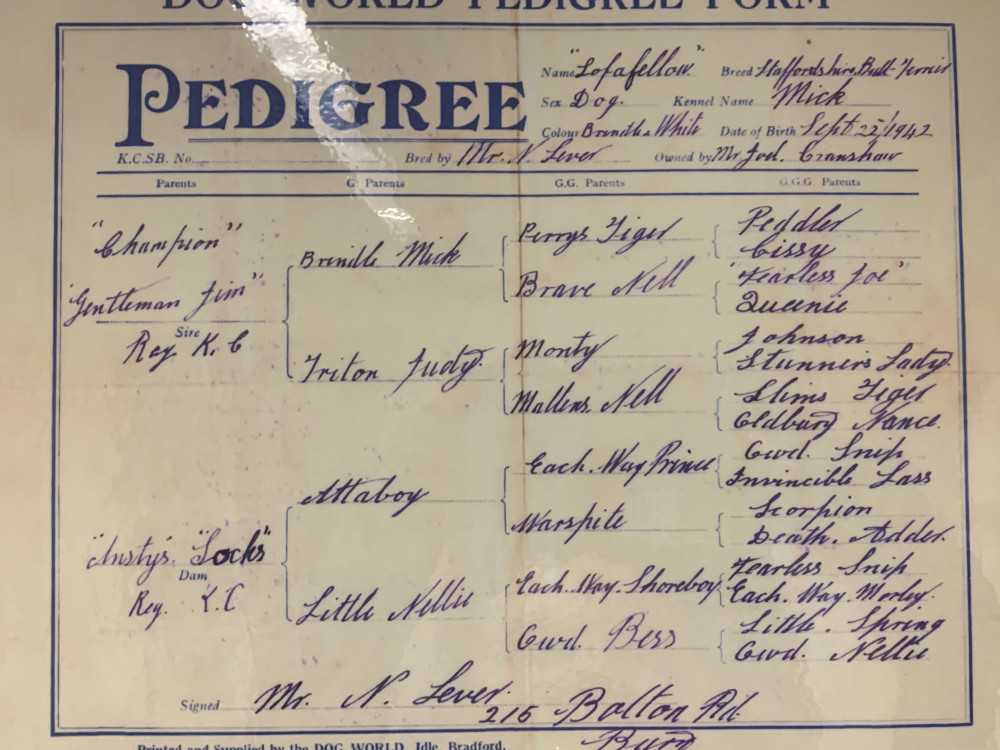 DOG WORLD PEDIGREE FORM
PEDIGREE
Name "Lofafellow" Breed Staffordshire Bull-Terrier
Sex Dog. Kennel Name Mick
Colour Brindle & White Date of Birth Sept 22/1942
K.C.S.B. No. Bred by Mr. N. Lever Owned by Mr Joel. Cranshaw
Parents G. Parents G.G. Parents G.G.G. Parents
"Champion"
"Gentleman Jim"
Sire
Reg K. C
Brindle Mick
Triton Judy.
Perrys Tiger
Brave Nell
Monty
Mallens Nell
Peddler
Cissy
"Fearless Joe"
Queenie
Johnson
Stunners Lady.
Slims Tiger
Oldbury Nance.
"Anstys. "Socks"
Dam
Reg. K.C
Attaboy
Little Nellie
Each. Way Prince
Warspite
Each. Way. Shoreboy
Gwd. Bess
Gwd. Snip
Invincible Lass
Scorpion
Death. Adder.
Fearless Snip
Each. Way. Morley.
Little. Spring
Gwd. Nellie
Signed Mr. N. Lever.
215 Bolton Rd.
Bury
Printed and Supplied by the DOG WORLD, Idle, Bradford.